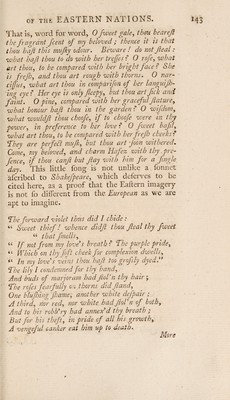 OF THE EASTERN NATIONS. 143
That is, word for word, O sweet gale, thou bearest
the fragrant scent of my beloved; thence it is that
thou hast this musky odour. Beware! do not steal:
what hast thou to do with her tresses? O rose, what
art thou, to be compared with her bright face? She
is fresh, and thou art rough with thorns. O nar-
cissus, what art thou in comparison of her languish-
ing eye? Her eye is only sleepy, but thou art sick and
faint. O pine, compared with her graceful stature,
what honour hast thou in the garden? O wisdom,
what wouldst thou chose, if to chose were in thy
power, in preference to her love? O sweet basil,
what art thou, to be compared with her fresh cheeks?
They are perfect musk, but thou art soon withered.
Come, my beloved, and charm Hafez with thy pre-
sence, if thou canst but stay with him for a single
day. This little song is not unlike a sonnet
ascribed to Shakespeare, which deserves to be
cited here, as a proof that the Eastern imagery
is not so different from the European as we are
apt to imagine.
The forward violet thus did I chide:
“ Sweet thief! whence didst thou steal thy sweet
“ that smells,
“ If not from my love's breath? The purple pride,
“ Which on thy soft cheek for complexion dwells,
“ In my love's veins thou hast too grosly dyed.”
The lily I condemned for thy hand,
And buds of marjoram had stol'n thy hair;
The roses fearfully on thorns did stand,
One blushing shame, another white despair:
A third, nor red, nor white had stol'n of both,
And to his robb'ry had annex'd thy breath;
But for his theft, in pride of all his growth,
A vengeful canker eat him up to death.
More